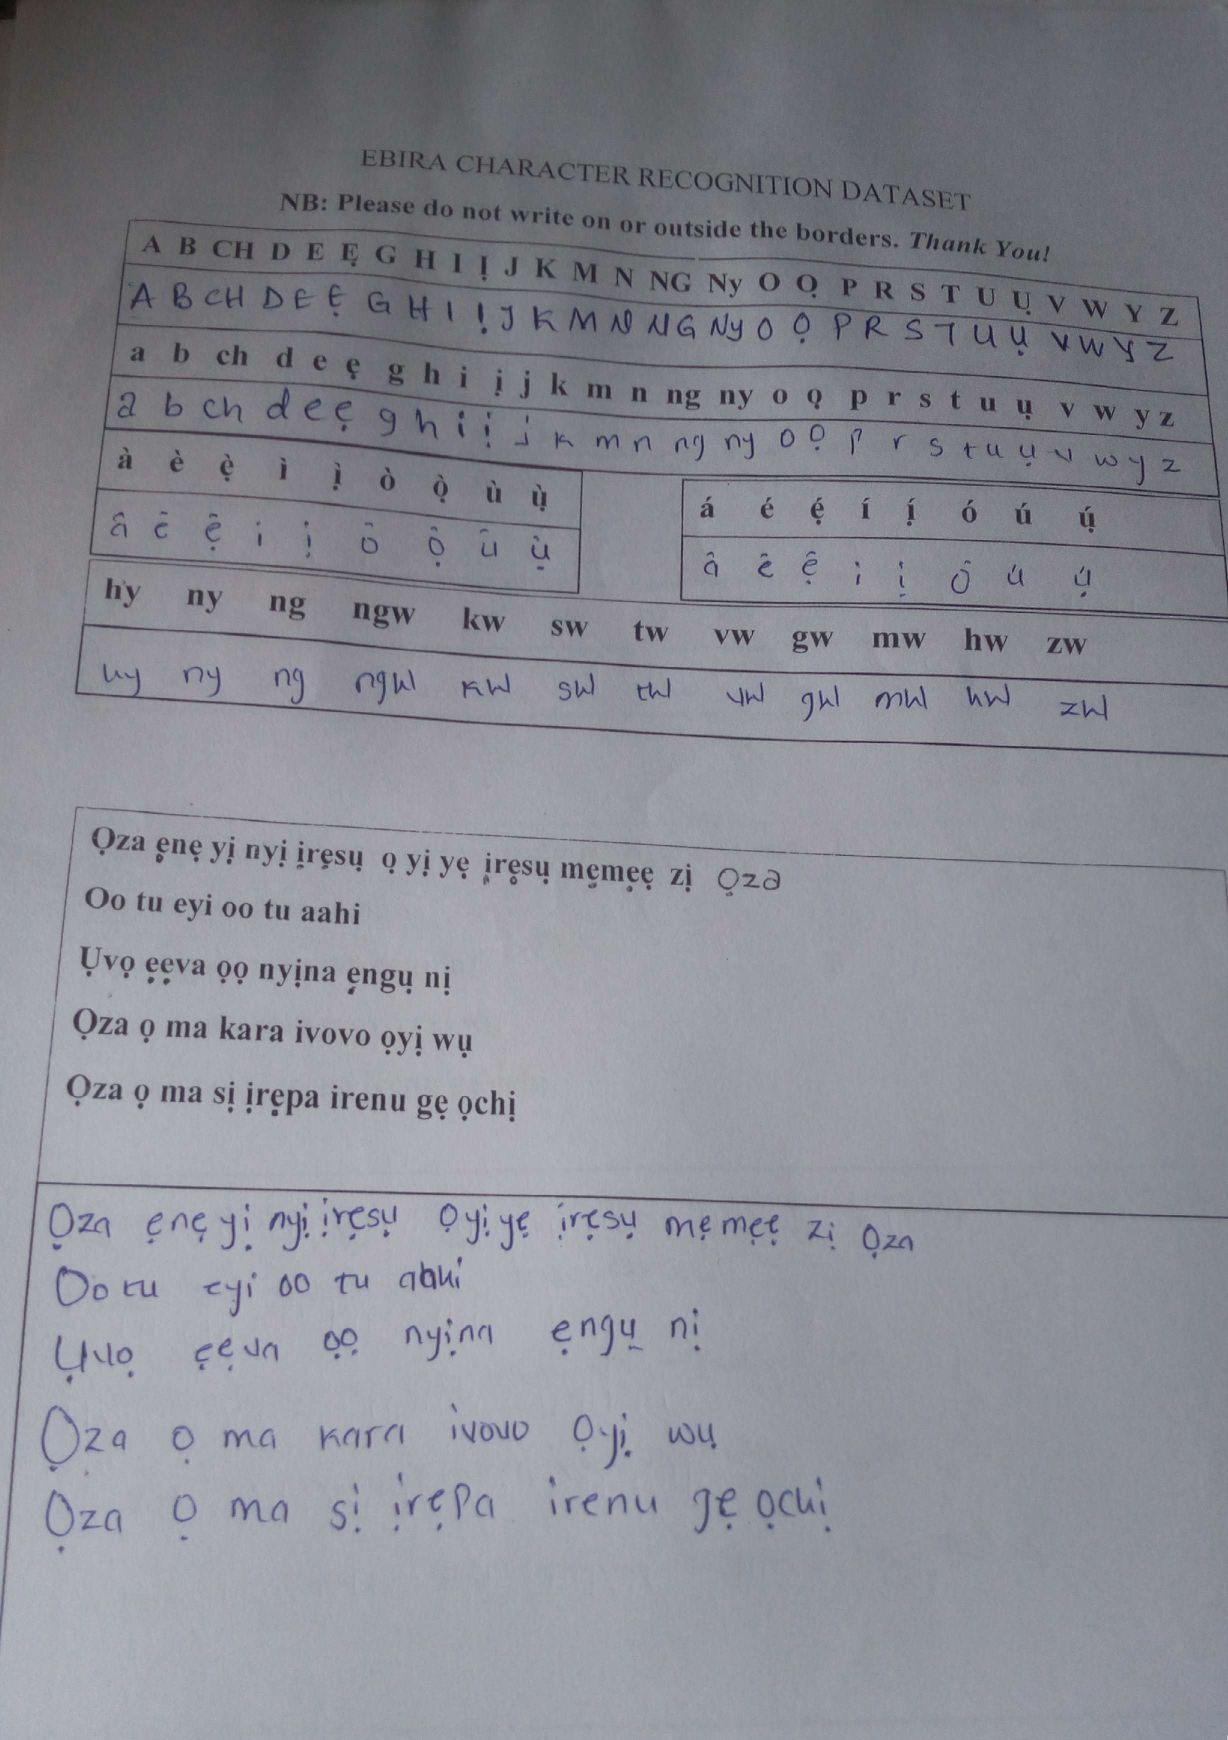 EBIRA CHARACTER RECOGNITION DATASET
NB: Please do not write on or outside the borders. Thank You!
A B CH D E Ẹ G H I Ị J K M N NG Ny O Ọ P R S T U Ụ V W Y Z
A B CH D E Ẹ G H I Ị J K M N NG Ny O Ọ P R S T U Ụ V W Y Z
a b ch d e ẹ g h i ị j k m n ng ny o ọ p r s t u ụ v w y z
a b ch d e ẹ g h i ị j k m n ng ny o ọ p r s t u ụ v w y z
à è ẹ̀ ì ị̀ ò ọ̀ ù ụ̀
â ê ệ i ị ô ộ û ụ̀
á é ẹ́ í ị́ ó ú ụ́
â ê ệ i ị ô ú ụ́
hy ny ng ngw kw sw tw vw gw mw hw zw
hy ny ng ngw kw sw tw vw gw mw hw zw
Ọza ẹnẹ yị nyị ịrẹsụ ọ yị yẹ ịrẹsụ mẹmẹẹ zị Ọza
Oo tu eyi oo tu aahi
Ụvọ ẹẹva ọọ nyịna ẹngụ nị
Ọza ọ ma kara ivovo ọyị wụ
Ọza ọ ma sị ịrẹpa irenu gẹ ọchị
Ọza ẹnẹ yị nyị ịrẹsụ Ọyị yẹ ịrẹsụ mẹ mẹẹ zị Ọza
Oo tu eyi oo tu aahi
Ụvọ ẹẹva ọọ nyịna ẹngụ nị
Ọza ọ ma kara ivovo Ọyị wụ
Ọza Ọ ma sị ịrẹpa irenu gẹ ọchị